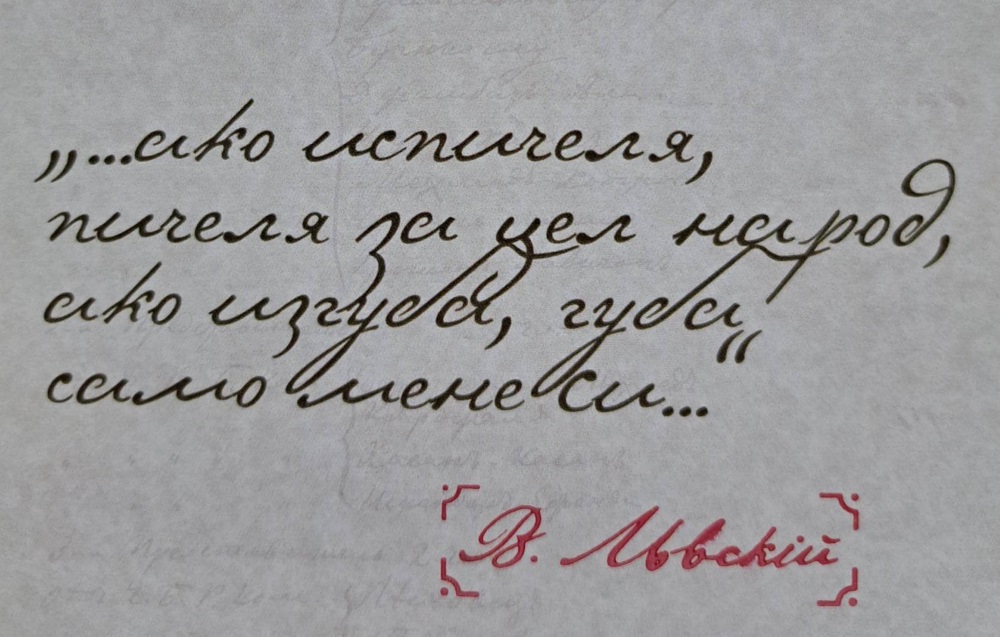 „...ако испичеля,
пичеля за цел народ,
ако изгубя, губя
само мене си..."
В. Львскій